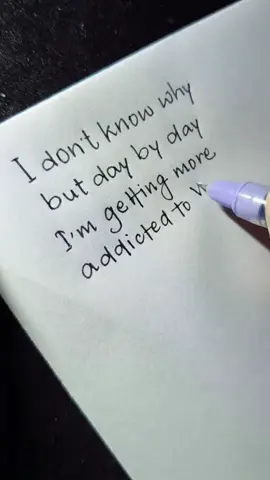 I don't know why
but day by day
I'm getting more
addicted to